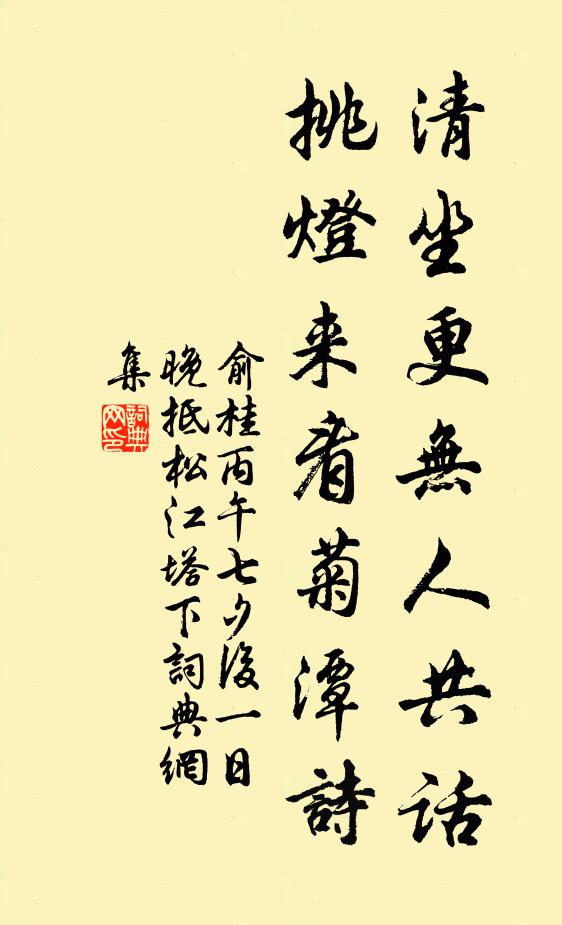 清坐更無人共话
挑燈来看菊潭詩
俞桂丙午七夕後一日
晚抵松江塔下詞典網
集
詞典
网印